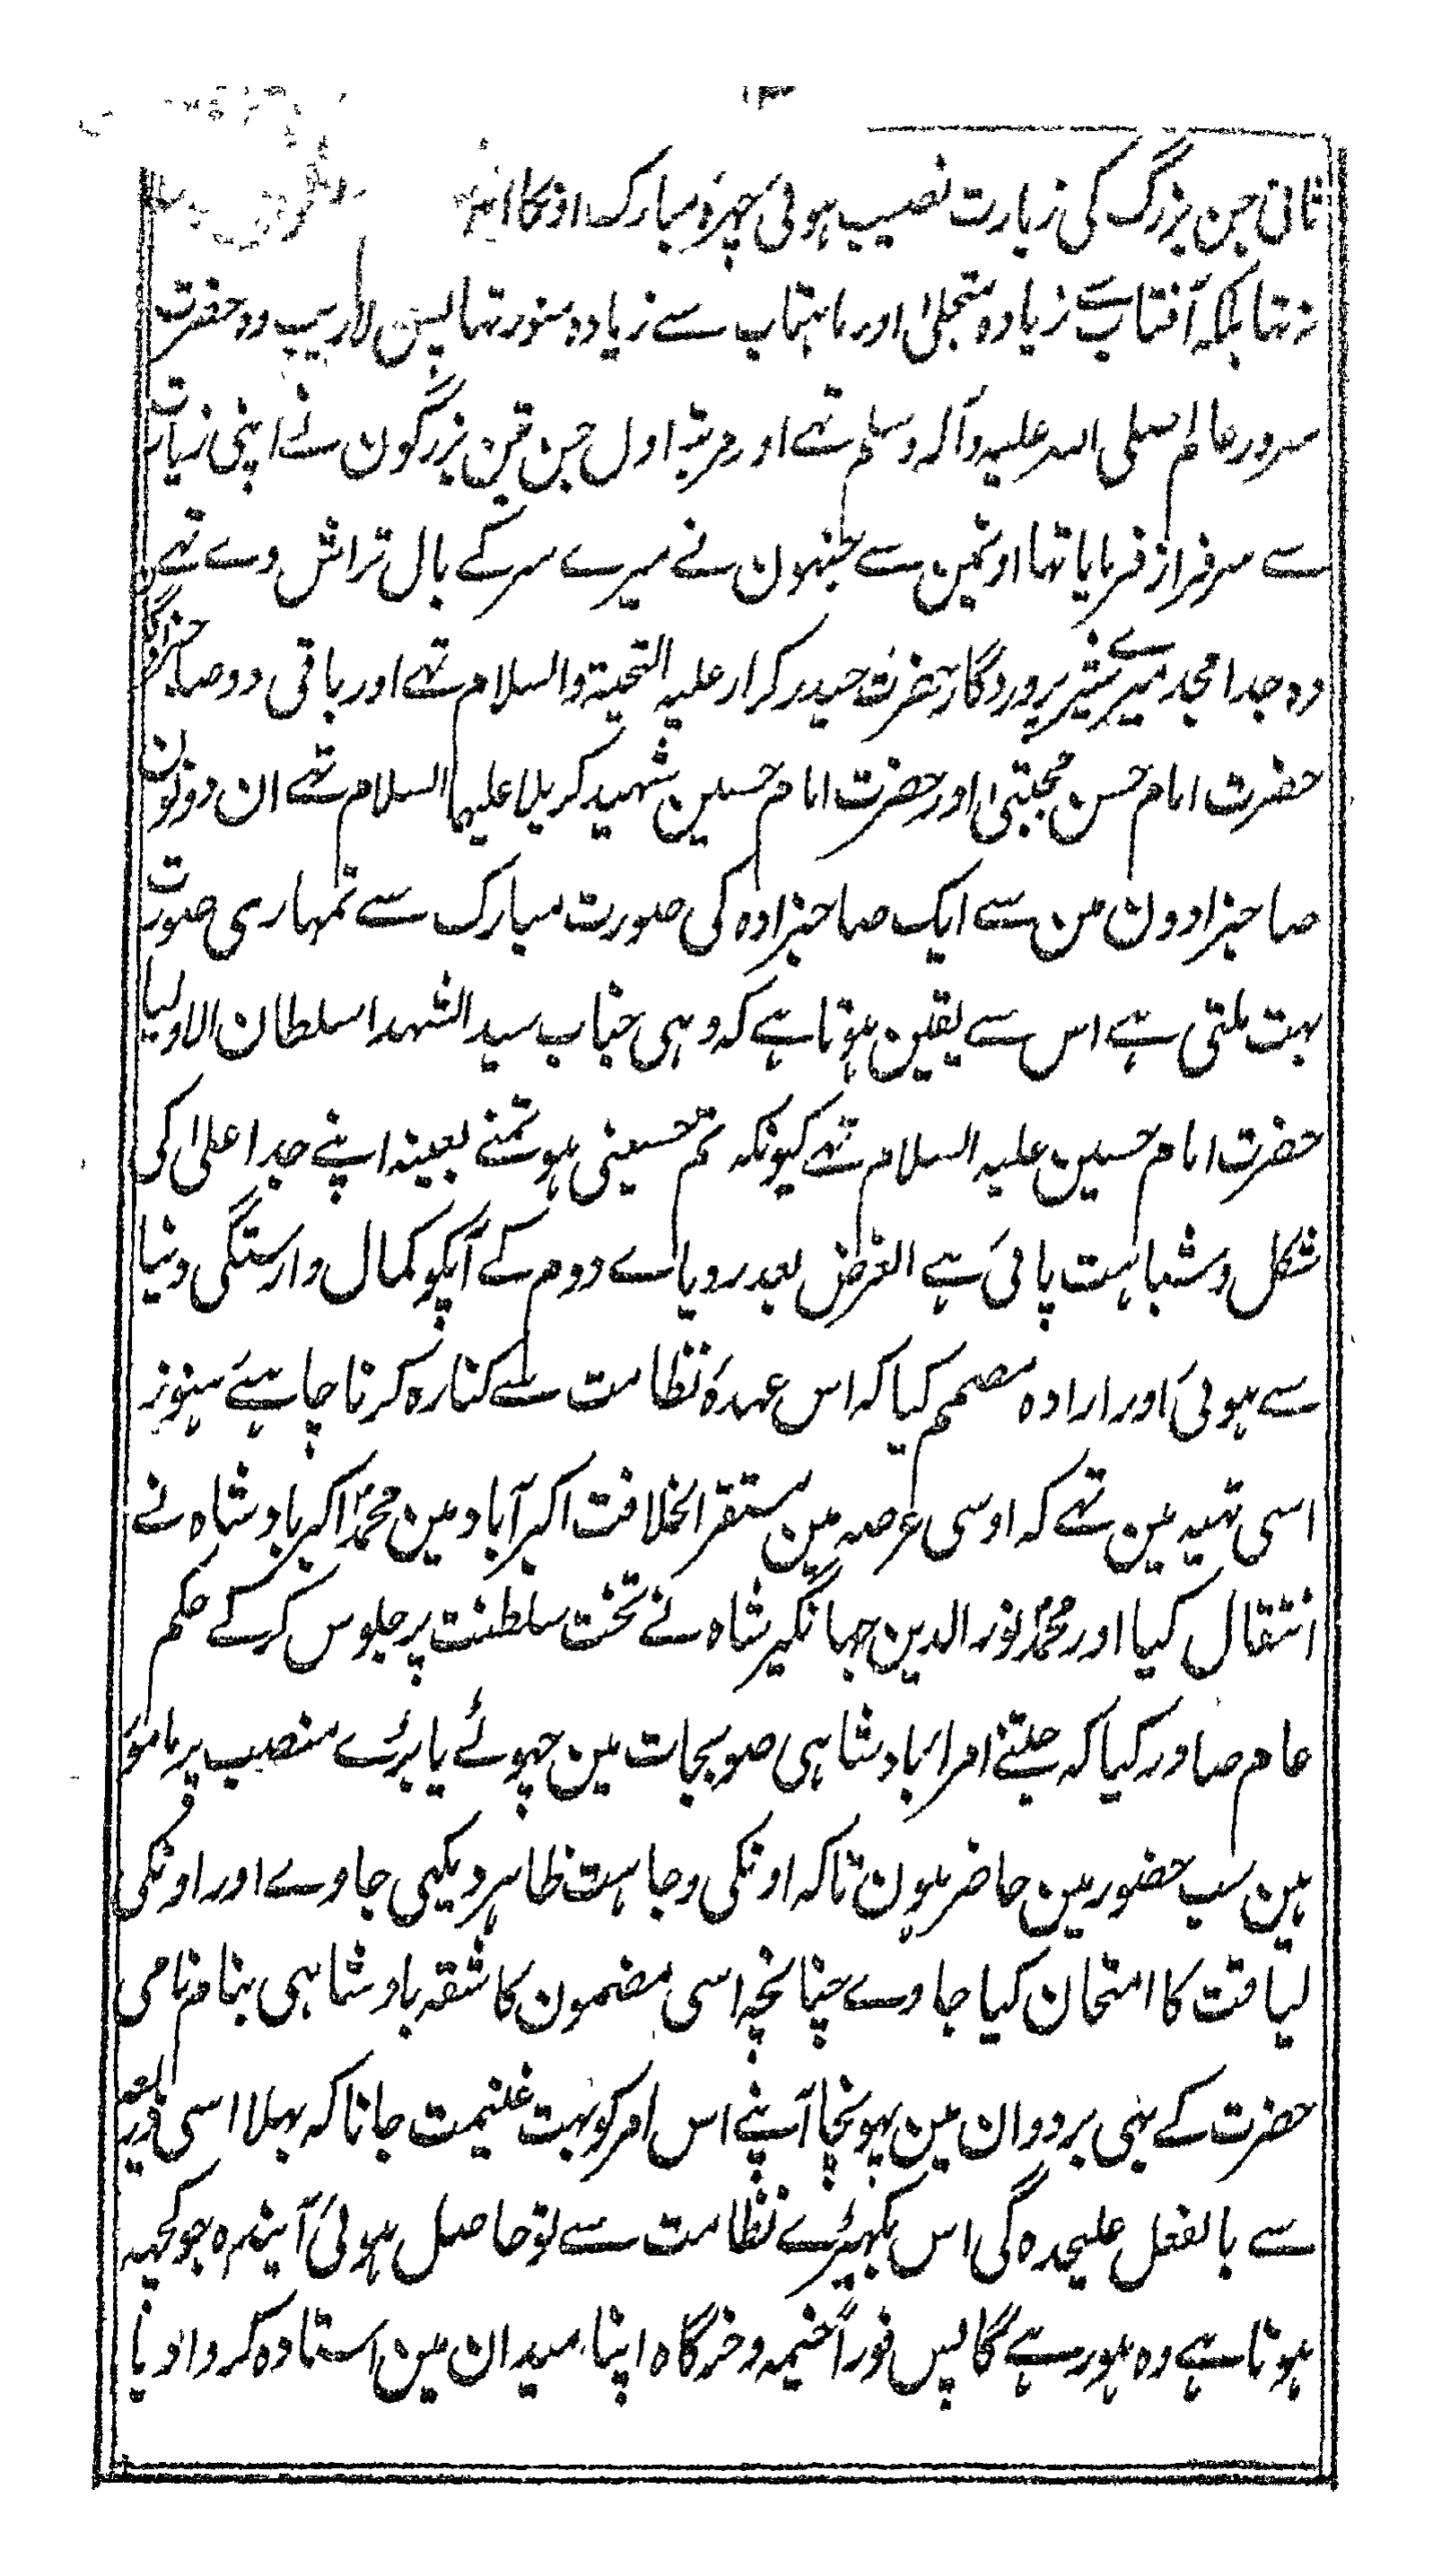 ۱۳
ثانی جن بزرگ کی زیارت نصیب ہوئی چہرۂ مبارک اونکا
نہ تہا بلکہ آفتاب سے زیادہ متجلیٰ اور ماہتاب سے زیادہ منور تہا پس لاریب وہ حضرت
سرور عالم صلی اللہ علیہ وآلہ وسلم تہے اور مرتبۂ اول جن تین بزرگون نے اپنی زیارت
سے سرفراز فرمایا تہا اونمین سے جنہون نے میرے سر کے بال تراش دے تہے
وہ جد امجد میرے شیر پروردگار حضرت حیدر کرار علیہ التحیۃ والسلام تہے اور باقی دو صاحبزادگان
حضرت امام حسن مجتبیٰ اور حضرت امام حسین شہید کربلا علیہما السلام تہے ان دونون
صاحبزادون مین سے ایک صاحبزادہ کی صورت مبارک سے تمہاری صورت
بہت ملتی ہے اس سے یقین ہوتا ہے کہ وہی جناب سید الشہدا سلطان الاولیا
حضرت امام حسین علیہ السلام تہے کیونکہ تم حسینی ہو تمنے بعینہ اپنے جد اعلیٰ کی
شکل و شباہت پائی ہے الغرض بعد رویاے دوم کے آپکو کمال وارستگی دنیا
سے ہوئی اور ارادہ مصمم کیا کہ اس عہدۂ نظامت سے کنارہ کرنا چاہئے ہنوز
اسی تہیہ مین تہے کہ اوسی عرصہ مین مستقر الخلافت اکبرآباد مین محمد اکبر بادشاہ نے
انتقال کیا اور محمد نور الدین جہانگیر شاہ نے تخت سلطنت پر جلوس کرکے حکم
عام صادر کیا کہ جتنے امراء بادشاہی صوبجات مین چہوٹے یا بڑے منصب پر مامور
ہین سب حضور مین حاضر ہون تاکہ اونکی وجاہت ظاہر دیکہی جاوے اور اونکی
لیاقت کا امتحان کیا جاوے چنانچہ اسی مضمون کا شقہ بادشاہی بنام نامی
حضرت کے بہی بردوان مین پہونچا آپنے اس امر کو بہت غنیمت جانا کہ بہلا اسی ذریعہ
سے بالفعل علیحدہ گی اس بکہیڑے نظامت سے تو حاصل ہوئی آیندہ جو کچہہ
ہوتا ہے وہ ہو رہے گا پس فوراً خیمہ و خرگاہ اپنا میدان مین استادہ کروا دیا